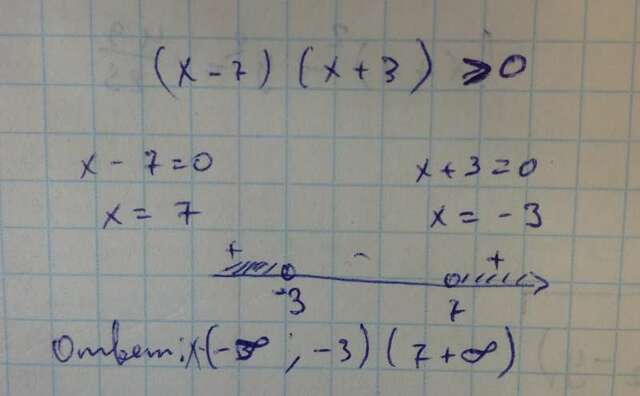 (x - 7) (x + 3) > 0
x - 7 = 0 x + 3 = 0
x = 7 x = - 3
+ - +
-3 7
Ответ: x (-∞ ; -3) (7 + ∞)